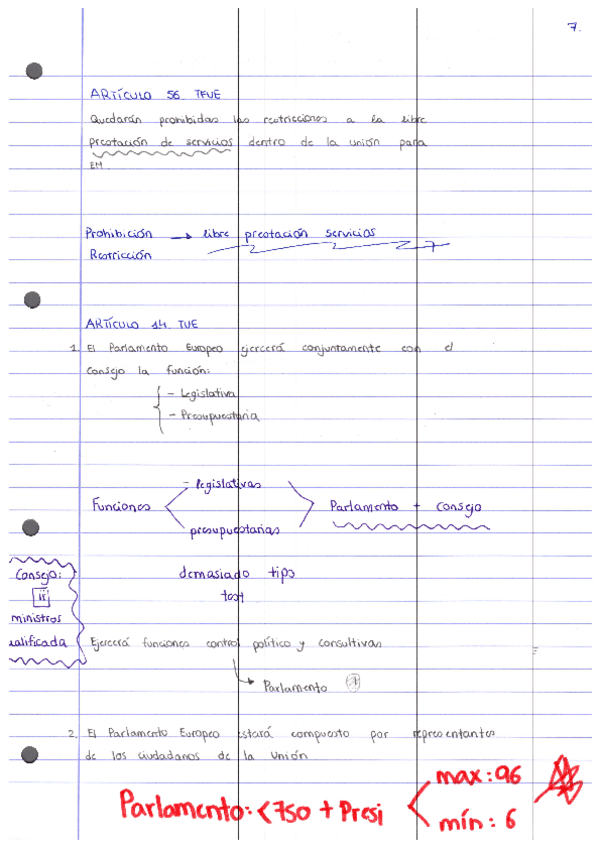 7.
ARTÍCULO 56 TFUE
Quedarán prohibidas las restricciones a la libre
prestación de servicios dentro de la unión para
EM
Prohibición → libre prestación servicios
Restricción
ARTÍCULO 14 TUE
1. El Parlamento Europeo ejercerá conjuntamente con el
Consejo la función:
- Legislativa
- Presupuestaria
- legislativas
Funciones
Parlamento + consejo
presupuestarias
Consejo:
demasiado tipo
test
ministros
ualificada
Ejercerá funciones control político y consultivas
Parlamento
2. El Parlamento Europeo estará compuesto por representantes
de los ciudadanos de la Unión
max: 96
Parlamento: < 750 + Presi
mín: 6